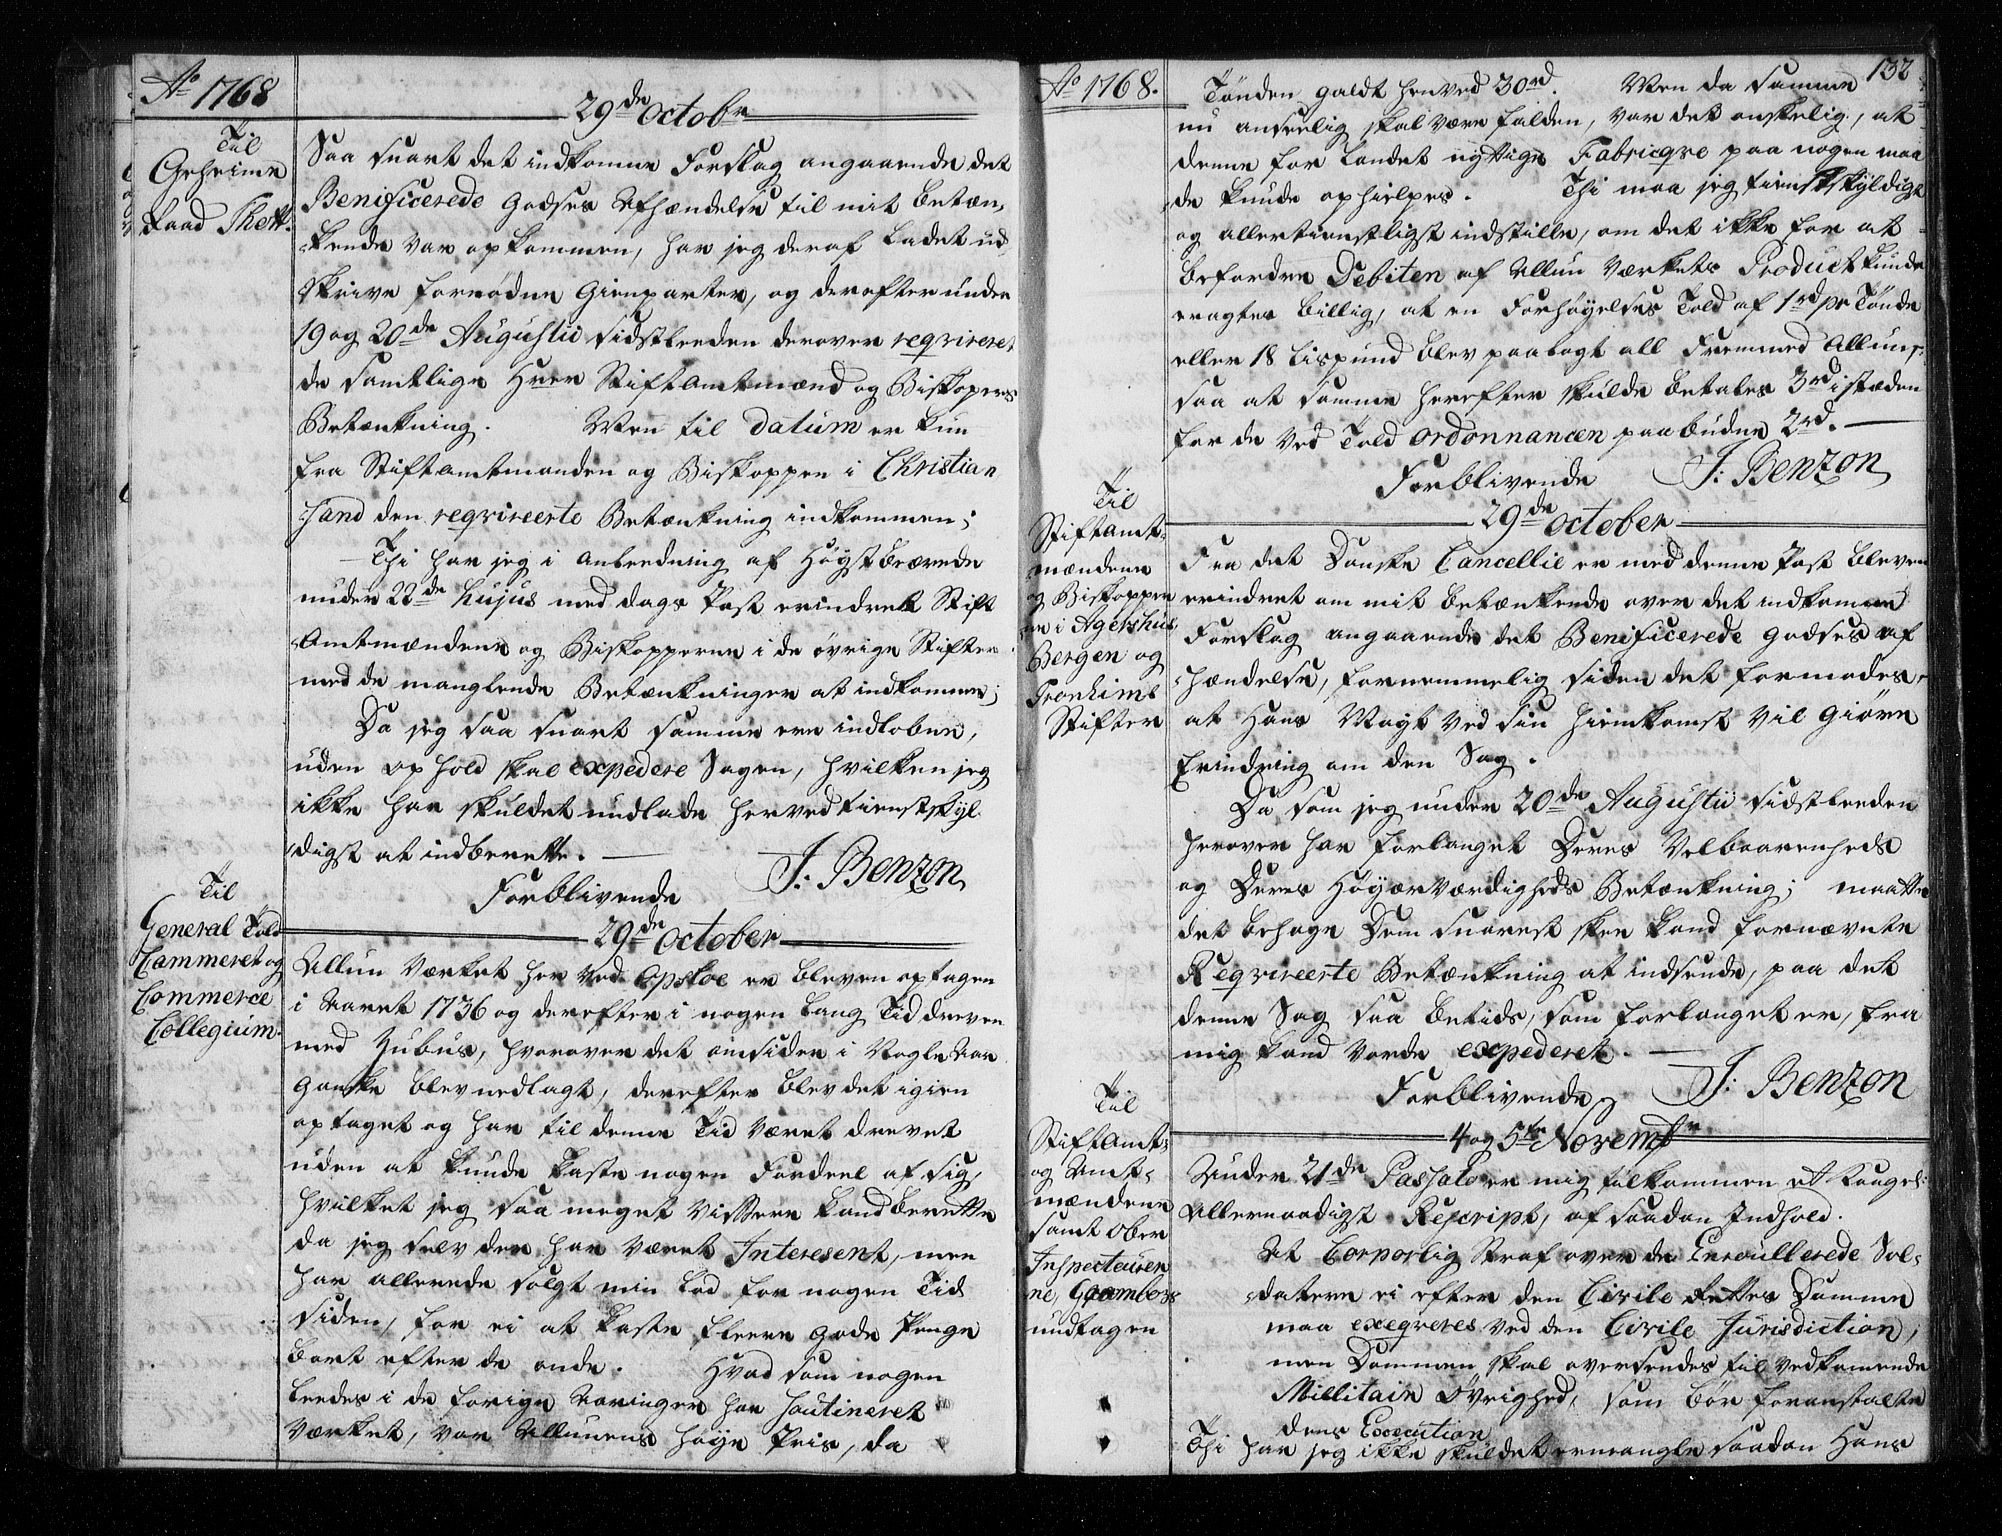 Ao 1768
29de Octobr
Til
Geheime
Raad Thott.
Saa snart det indkomne Forslag angaaende det
Benificerede Godses Afhændelse til mit betæn,
kende var opkommen, har jeg deraf ladet ud
skrive fornødne Gienparter, og derefter under
19 og 20de Augustii sidstleeden derover reqvireret
de samtlige Hrer Stiftamtmænd og Biskopers
Betænkning. Men til datum er kun
fra Stiftamtmanden og Biskoppen i Christian
sand den reqvireerte Betænkning indkommen;
Thi har jeg i Anleedning af Høystbeærede
under 22de hujus med dags Post erindret Stift
Amtmændene og Biskopperne i de øvrige Stifter
med de manglende Betænkninger at indkomme;
Da jeg saa snart samme ere indløbne,
uden ophold skal expedere Sagen, hvilken jeg
ikke har skuldet undlade herved tienstskyl
digst at indberette.
Forblivende J: Benzon
29de October
Til
General Told
Cammeret og
Commerce
Collegium.
Allun Værket her ved Opsloe er bleven optagen
i Aaret 1736 og derefter i nogen lang Tid dreven
med Zubus, hvorover det omsider i Nogle Aar
ganske blev nedlagt, derefter blev det igien
optaget og har til denne Tid været drevet
uden at kunde kaste nogen Fordeel af sig,
hvilket jeg saa meget vissere kand berette
da jeg selv der har været Interesent, men
har allerede solgt min Lod for nogen Tid
siden, for ei at kaste fleere gode Penge
bort efter de onde. Hvad som nogen
leedes i de forige Aaringer har soutineret
Værket, var Allunens høye Pris, da
Ao 1768.
132
Tønden galdt henved 30rd. Men da samme
nu anseelig skal være falden, var det ønskelig, at
denne for Landet nyttige Fabricqve paa nogen maa
de kunde ophielpes. Thi maa jeg tienstskyldigst
og allertienstligst indstille, om det ikke for at
befordre Debiten af Allun Værkets Product kunde
eragtes billig, at en Forhøyelses Told af 1rd pr Tønde
eller 18 Lispund blev paalagt all Fremmed Allun,
saa at samme herefter skulde betales 3rd istæden
for de ved Told Ordonnancen paabudne 2rd.
Forblivende J: Benzon
29de October
Til
Stiftamt,
mændene
og Biskoppen
ne i Agershus
Bergen og
Tronhims
Stifter
Fra det Danske Cancellie er med denne Post bleven
erindret om mit betænkende over det indkomne
Forslag angaaende det Benificerede Godses af
hændelse, fornemmelig siden det formodes,
at Hans Mayt ved sin hiemkomst vil giøre
Erindring om den Sag.
Da som jeg under 20de Augustii sidstleeden
herover har forlanget Deres Velbaarenheds
og Deres Høyærværdigheds Betænkning; maatte
det behage Dem snarest skee kand fornævnte
Reqvireerte Betænkning at indsende, paa det
denne Sag saa betids, som forlanget er, fra
mig kand vorde expederet.
Forblivende J: Benzon
4 og 5te Novembr
Til
Stiftamt,
og Amt,
mændene
samt Ober
Inspecteuren
ne,
undtagen
Under 21de Passato er mig tilkommen et Kongel:
Allernaadigst Rescript, af saadan Indhold.
At Corporlig Straf over de Enroullerede Sol,
datere ei efter den Civile Rettes Domme
maa exeqveres ved den Civile Jurisdiction,
men Dommen skal oversendes til vedkomende
Millitair Øvrighed, som bør foranstalte
dens Execution
Thi har jeg ikke skuldet ermangle saadan Hans